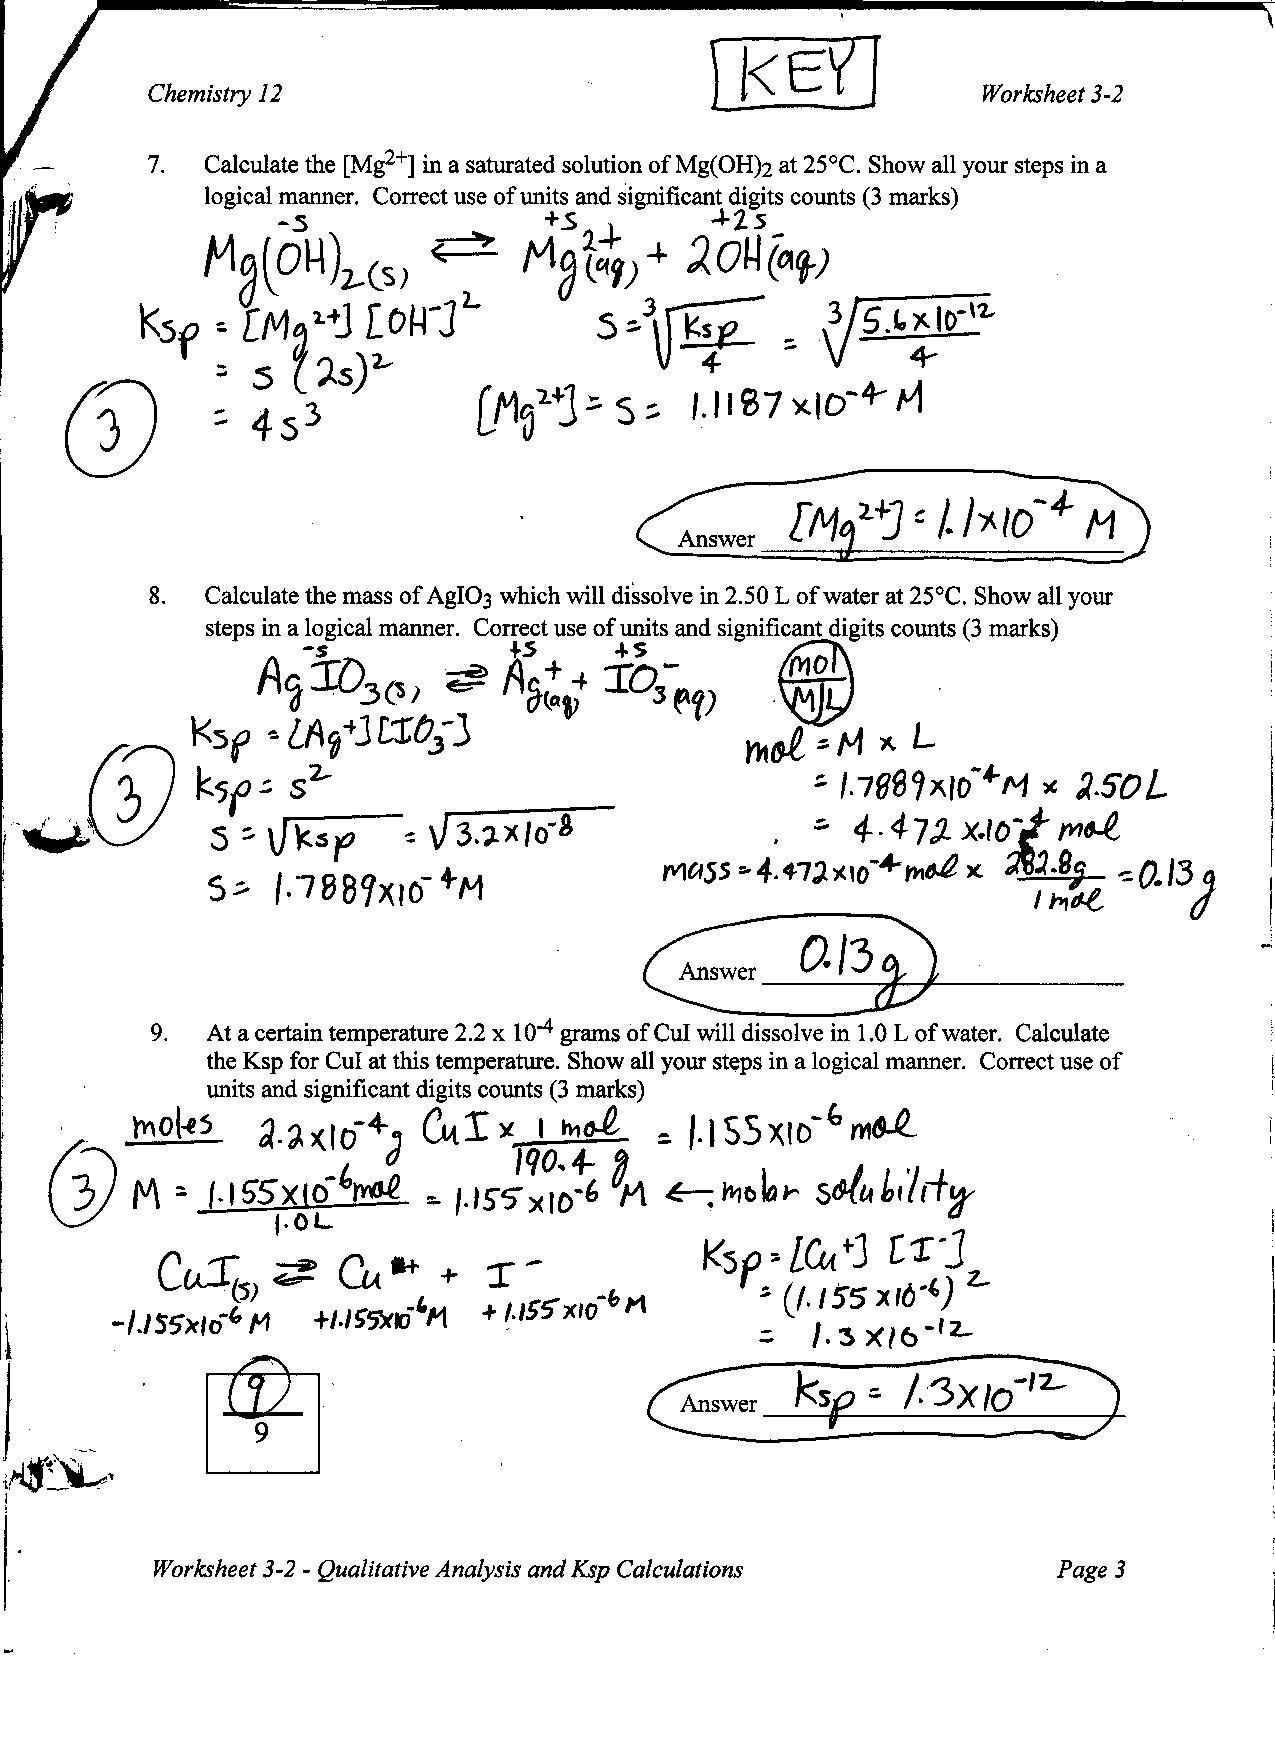 KEY
Chemistry 12 Worksheet 3-2
7. Calculate the [Mg2+] in a saturated solution of Mg(OH)2 at 25°C. Show all your steps in a
logical manner. Correct use of units and significant digits counts (3 marks)
-s +s +2s
Mg(OH)2(s) ⇌ Mg2+(aq) + 2OH-(aq)
Ksp = [Mg2+] [OH-]2 s = ∛(Ksp/4) = ∛(5.6x10-12/4)
= s (2s)2
= 4s3 [Mg2+] = s = 1.1187 x10-4 M
3
Answer [Mg2+] = 1.1x10-4 M
8. Calculate the mass of AgIO3 which will dissolve in 2.50 L of water at 25°C. Show all your
steps in a logical manner. Correct use of units and significant digits counts (3 marks)
-s +s +s
AgIO3(s) ⇌ Ag+(aq) + IO3-(aq) mol M|L
Ksp = [Ag+][IO3-] mol = M x L
3 ksp = s2 = 1.7889x10-4 M x 2.50L
s = √ksp = √3.2x10-8 = 4.472 x10-4 mol
s = 1.7889x10-4 M mass = 4.472x10-4 mol x 282.8g/1 mol = 0.13 g
Answer 0.13g
9. At a certain temperature 2.2 x 10-4 grams of CuI will dissolve in 1.0 L of water. Calculate
the Ksp for CuI at this temperature. Show all your steps in a logical manner. Correct use of
units and significant digits counts (3 marks)
moles 2.2x10-4g CuI x 1 mol/190.4 g = 1.155x10-6 mol
3 M = 1.155x10-6 mol/1.0L = 1.155 x10-6 M ← molar solubility
CuI(s) ⇌ Cu+ + I- Ksp = [Cu+] [I-]
-1.155x10-6 M +1.155x10-6 M +1.155 x10-6 M = (1.155 x10-6)2
= 1.3 x10-12
9
9
Answer Ksp = 1.3x10-12
Worksheet 3-2 - Qualitative Analysis and Ksp Calculations Page 3